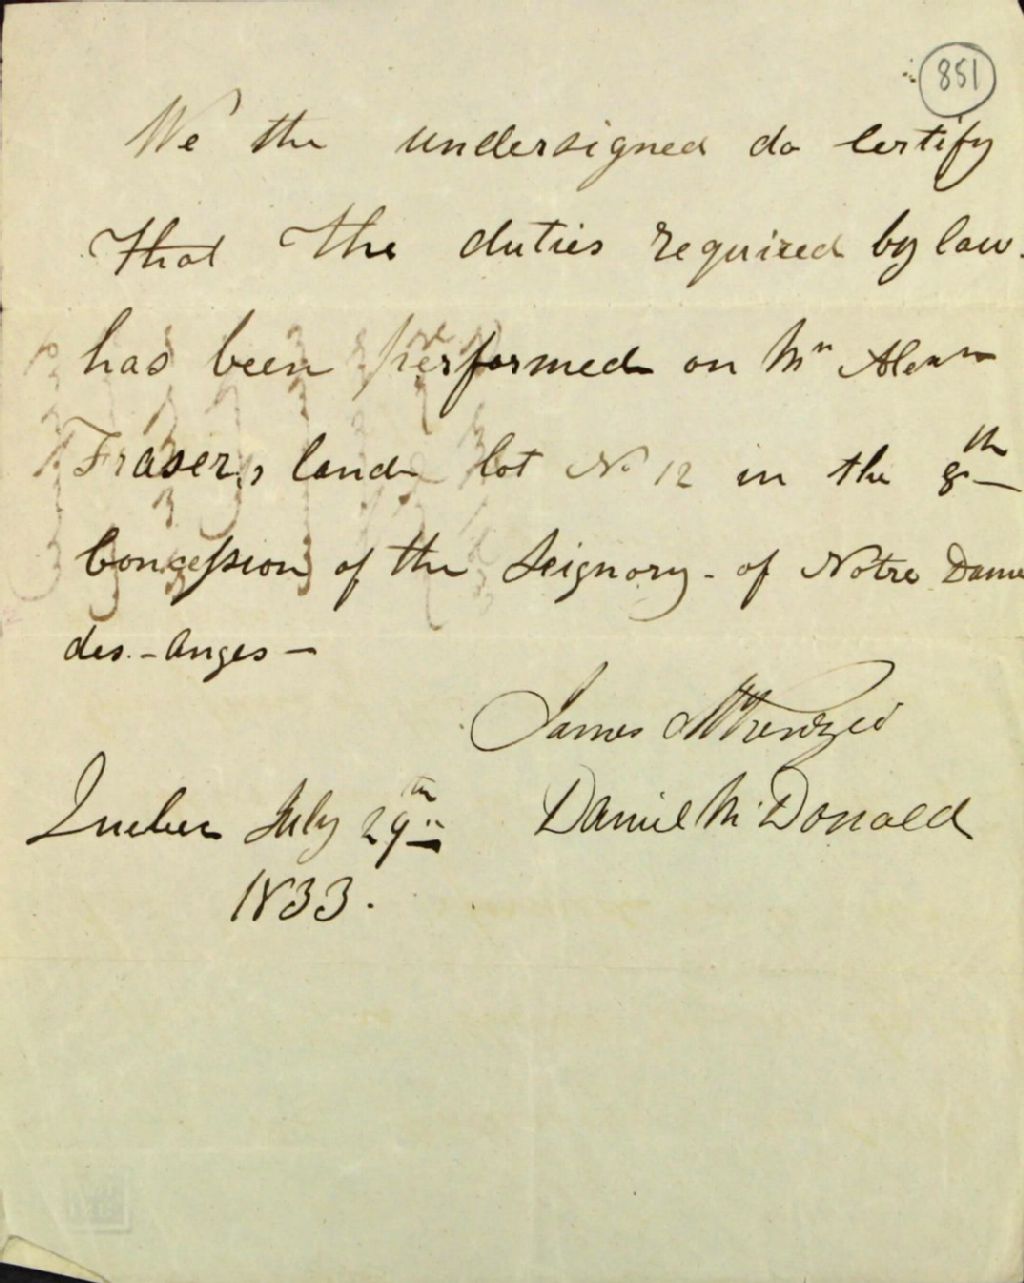 851
We the undersigned do certify
that the duties required by law
has been performed on Mr Alexr
Fraser, land lot No 12 in the 8th
Concession of the Seignory - of Notre Dame
des - Anges -
James McKenzie
Quebec July 29th Daniel McDonald
1833.